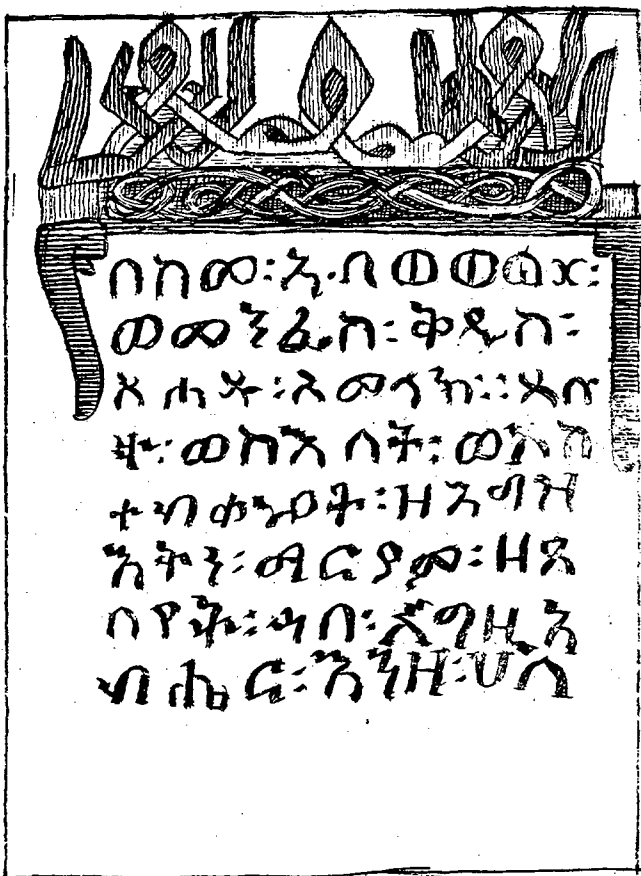 በስመ፡አብ ወወልድ፡
ወመንፈስ፡ቅዱስ፡
አሐዱ፡አምላክ፡፡ጸሎ
ት፡ወስእለት፡ወአስ
ተብቍዖት፡ዘእግዝ
እትነ፡ማርያም፡ዘጸ
ለየት፡ኀበ፡እግዚአ
ብሔር፡እንዘ፡ሀለ